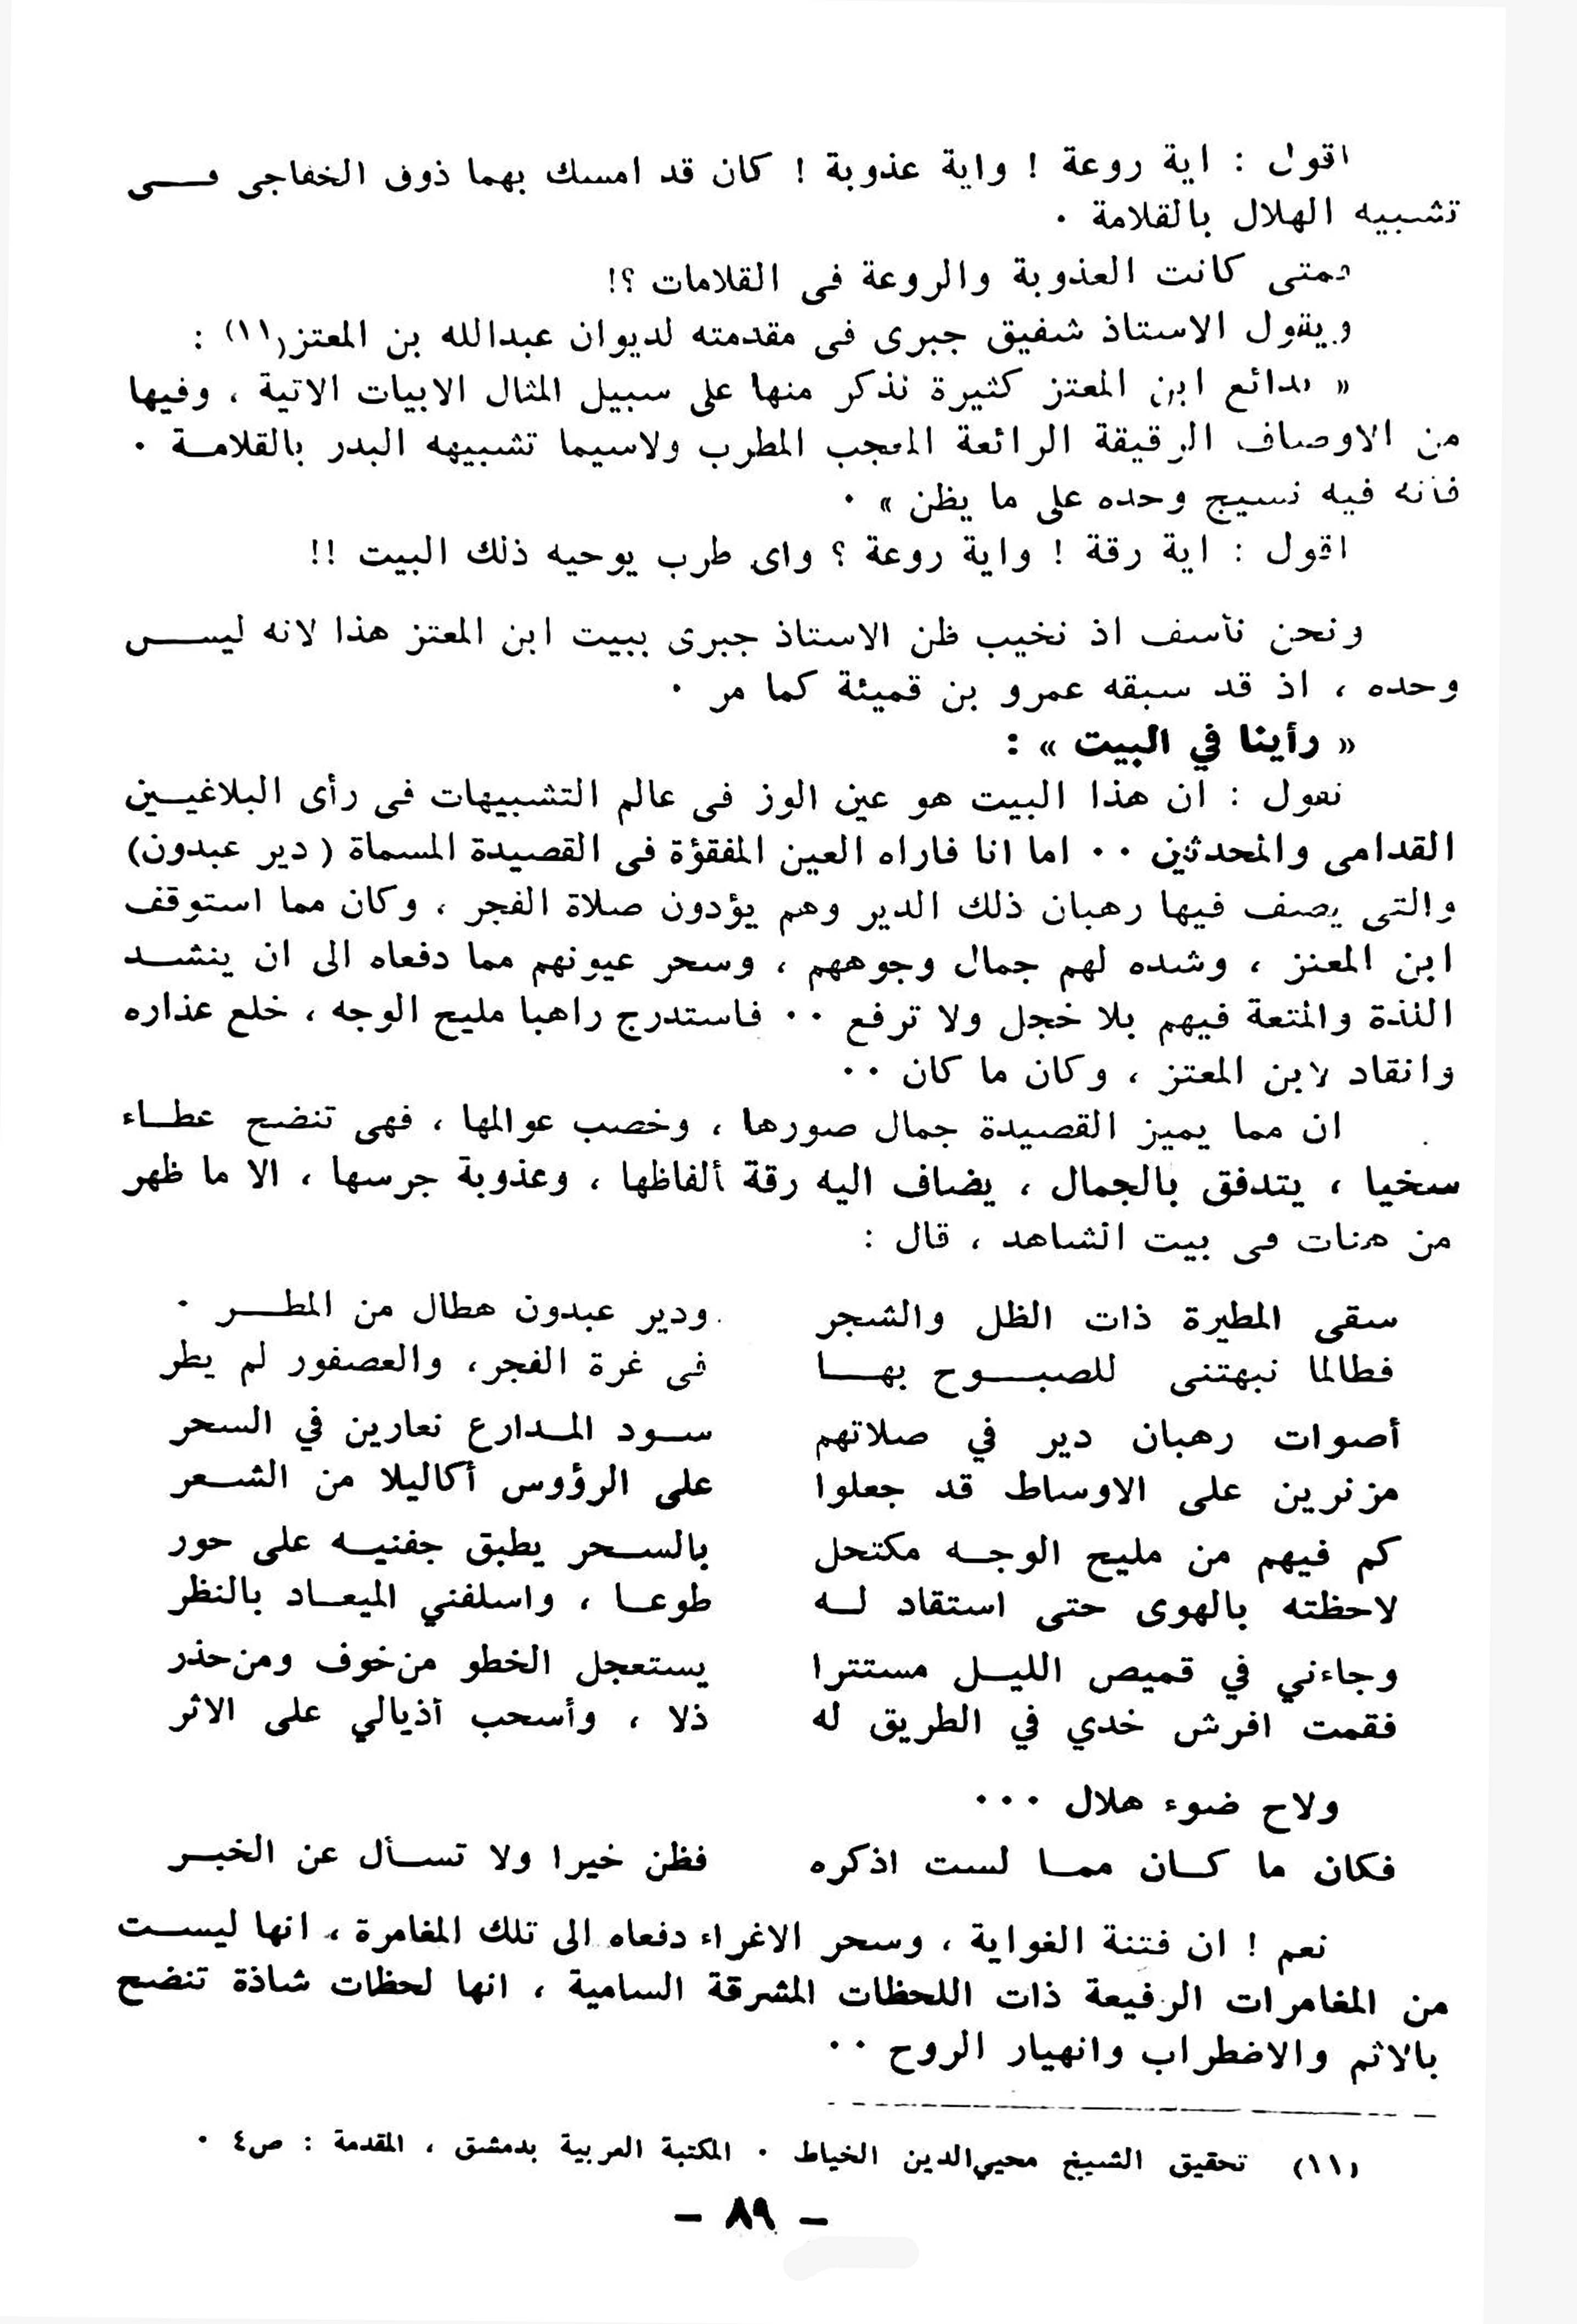 اقول : اية روعة ! واية عذوبة ! كان قد امسك بهما ذوق الخفاجى فــى
تشبيه الهلال بالقلامة ٠
فمتى كانت العذوبة والروعة فى القلامات ؟!
ويقول الاستاذ شفيق جبرى فى مقدمته لديوان عبدالله بن المعتز(١١) :
« بدائع ابن المعتز كثيرة نذكر منها على سبيل المثال الابيات الاتية ، وفيها
من الاوصاف الرقيقة الرائعة المعجب المطرب ولاسيما تشبيهه البدر بالقلامــة ٠
فانه فيه نسيج وحده على ما يظن » ٠
اقول : اية رقة ! واية روعة ؟ واى طرب يوحيه ذلك البيت !!
ونحن نأسف اذ نخيب ظن الاستاذ جبرى ببيت ابن المعتز هذا لانه ليــس
وحده ، اذ قد سبقه عمرو بن قميئة كما مر ٠
« رأينا في البيت » :
نقول : ان هذا البيت هو عين الوز فى عالم التشبيهات فى رأى البلاغيــين
القدامى والمحدثين ٠٠ اما انا فاراه العين المفقؤة فى القصيدة المسماة ( دير عبدون)
والتى يصف فيها رهبان ذلك الدير وهم يؤدون صلاة الفجر ، وكان مما استوقف
ابن المعتز ، وشده لهم جمال وجوههم ، وسحر عيونهم مما دفعاه الى ان ينشــد
اللذة والمتعة فيهم بلا خجل ولا ترفع ٠٠ فاستدرج راهبا مليح الوجه ، خلع عذاره
وانقاد لابن المعتز ، وكان ما كان ٠٠
ان مما يميز القصيدة جمال صورها ، وخصب عوالمها ، فهى تنضح عطــاء
سخيا ، يتدفق بالجمال ، يضاف اليه رقة ألفاظها ، وعذوبة جرسها ، الا ما ظهر
من هنات فى بيت الشاهد ، قال :
سقى المطيرة ذات الظل والشجر ودير عبدون هطال من المطــر ٠
فطالما نبهتنى للصبــوح بهــا فى غرة الفجر، والعصفور لم يطر
أصوات رهبان دير في صلاتهم ســود المــدارع نعارين في السحر
مزنرين على الاوساط قد جعلوا على الرؤوس أكاليلا من الشــعر
كم فيهم من مليح الوجــه مكتحل بالســحر يطبق جفنيــه على حور
لاحظته بالهوى حتى استقاد لــه طوعــا ، واسلفني الميعــاد بالنظر
وجاءني في قميص الليــل مستترا يستعجل الخطو من خوف ومن حذر
فقمت افرش خدي في الطريق له ذلا ، وأسحب أذيالي على الاثر
ولاح ضوء هلال ٠٠٠
فكان ما كــان ممــا لست اذكره فظن خيرا ولا تســأل عن الخبــر
نعم ! ان فتنة الغواية ، وسحر الاغراء دفعاه الى تلك المغامرة ، انها ليســت
من المغامرات الرفيعة ذات اللحظات المشرقة السامية ، انها لحظات شاذة تنضح
بالاثم والاضطراب وانهيار الروح ٠٠
(١١) تحقيق الشيخ محيي‌الدين الخياط ٠ المكتبة العربية بدمشق ، المقدمة : ص٤ ٠
– ٨٩ –